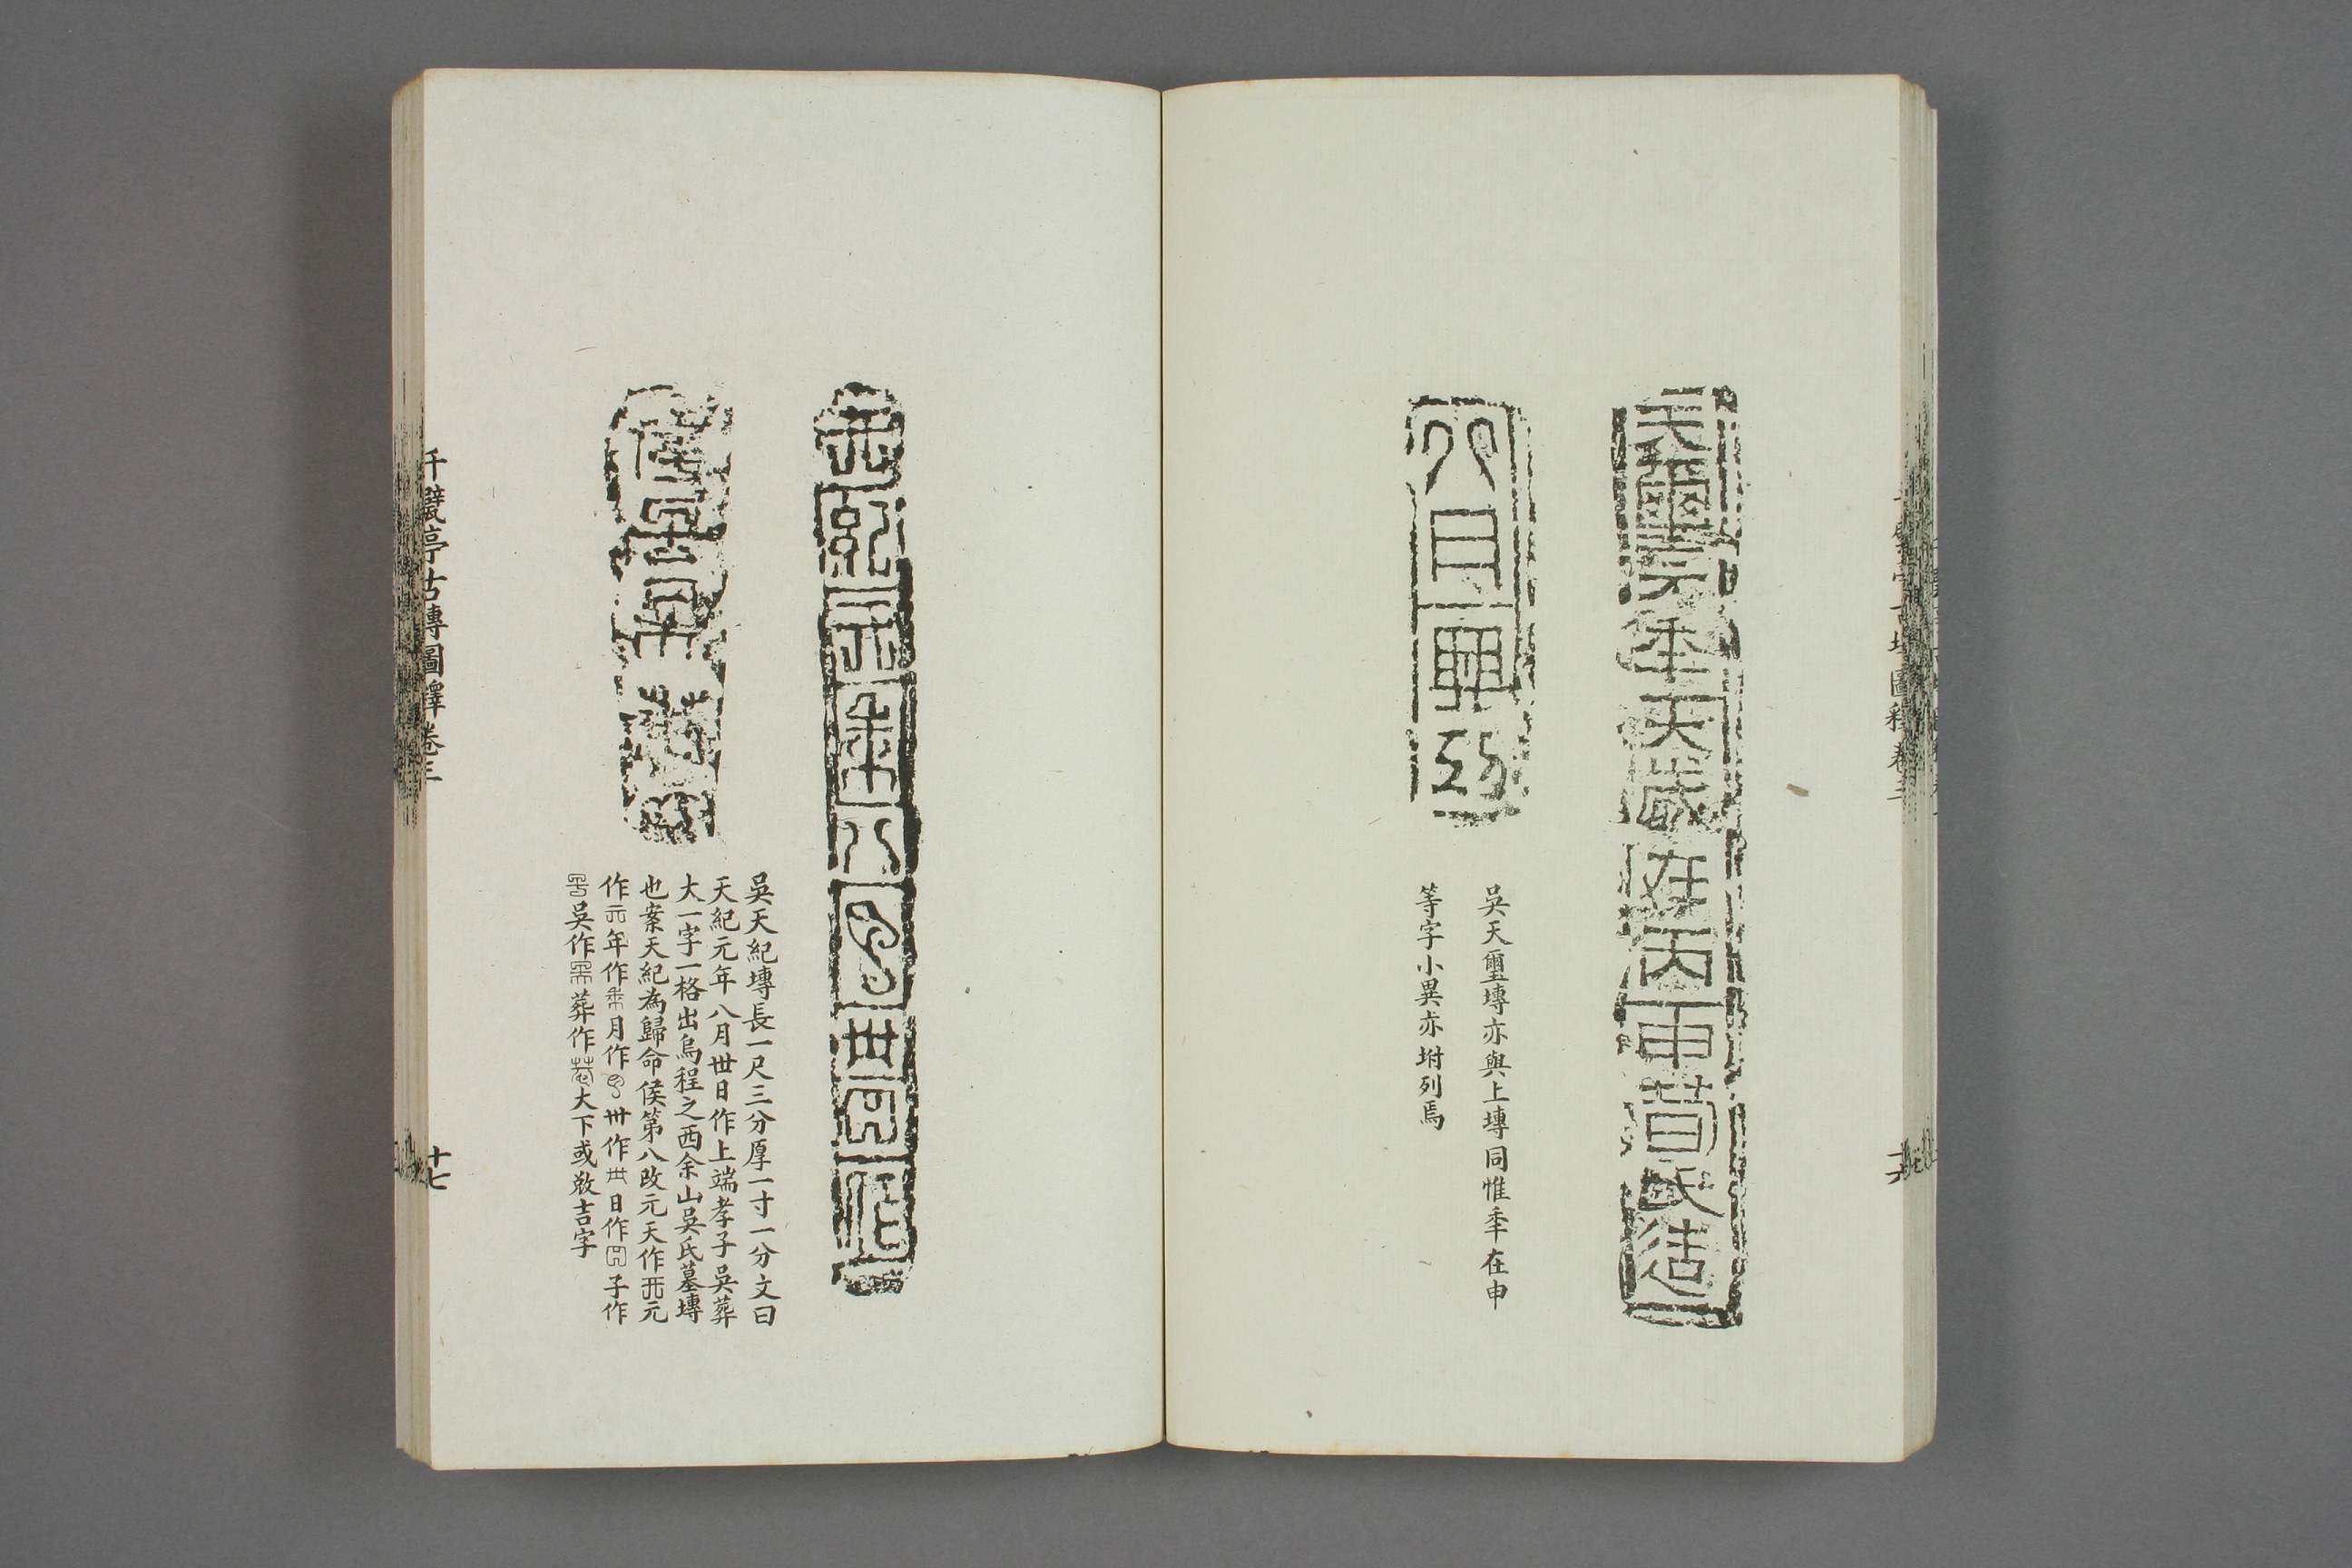 天璽元年太歲在丙申昔氏造
六月興功
吳天璽塼亦與上塼同惟秊在申
等字小異亦坿列焉
天紀元年八月丗日作
吳天紀塼長一尺三分厚一寸一分文曰
天紀元年八月丗日作上端孝子吳葬
大一字一格出烏程之西余山吳氏墓塼
也案天紀為歸命侯第八改元天作元
作年作月作丗作日作子作
吳作葬作大下或敚吉字
千甓亭古塼圖釋卷三
十七